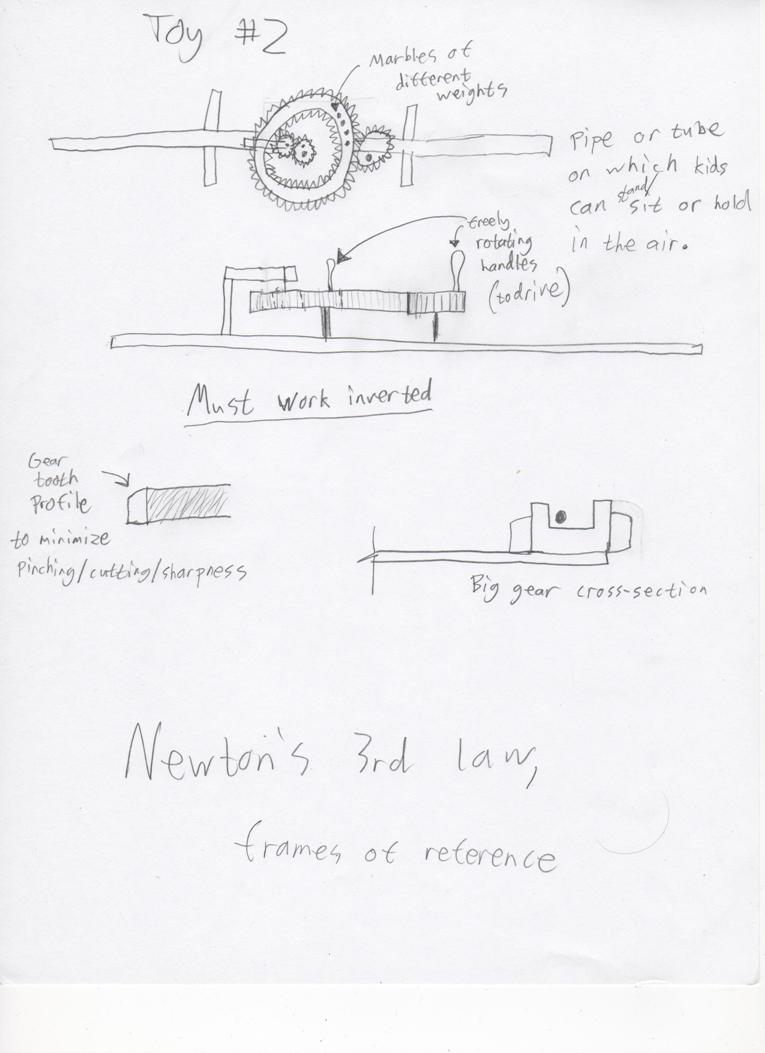 Toy #2
Marbles of
different
weights
Pipe or tube
on which kids
can stand/sit or hold
in the air.
freely
rotating
handles
(to drive)
Must work inverted
Gear
tooth
profile
to minimize
pinching/cutting/sharpness
Big gear cross-section
Newton's 3rd law,
frames of reference